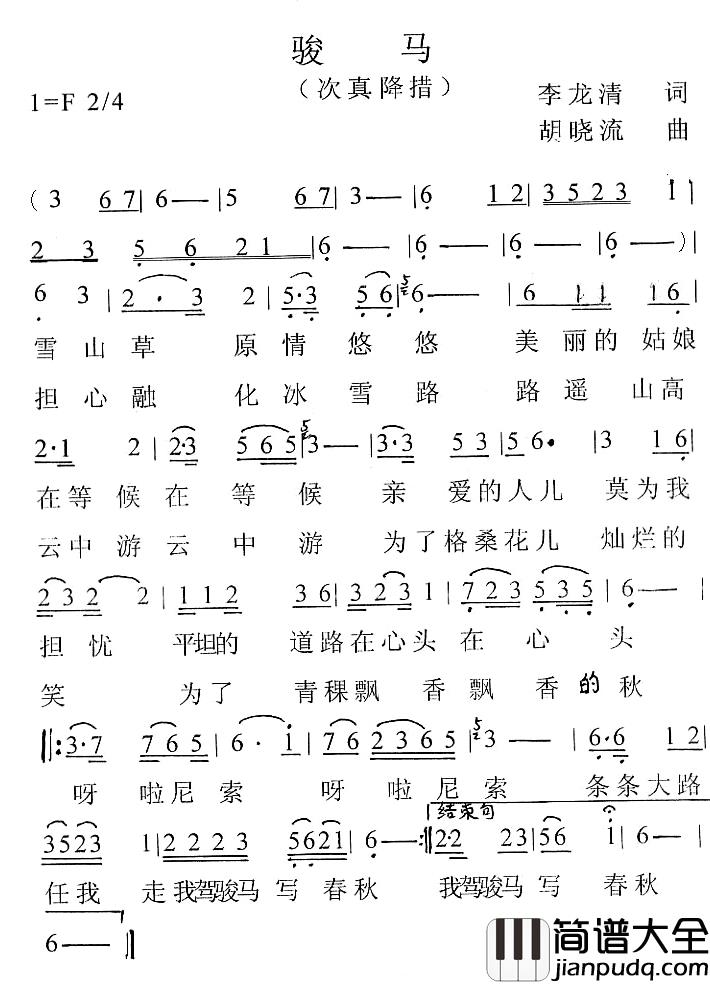 骏 马
（次真降措）
1=F 2/4
李龙清 词
胡晓流 曲
(3 67| 6—|5 67| 3—|6 12| 3523 1|
2 3 5 6 21|6— |6— |6— |6—)|
6 3|2 · 3 2|5·3 56|6—|6 11 16|
雪山草 原情悠悠 美丽的姑娘
担心融 化冰雪路 路遥山高
2·1 2|2·3 565|3—|3·3 53|56· |3 16|
在等候在等候 亲爱的人儿 莫为我
云中游云中游 为了格桑花儿 灿烂的
232 2|112 36|323 1|723 535|6—|
担忧 平坦的 道路在心头在心头
笑 为了 青稞飘香飘香的秋
‖:3·7 765|6· i|76 2365|3—|6·6 12|
呀 啦尼索 呀 啦尼索 条条大路
结束句
3523 1|2223 5621|6—:‖2·2 23|56 1|6—|
任我 走我驾骏马写春秋 我驾骏马写 春秋
6—‖
简谱大全
jianpudq.com